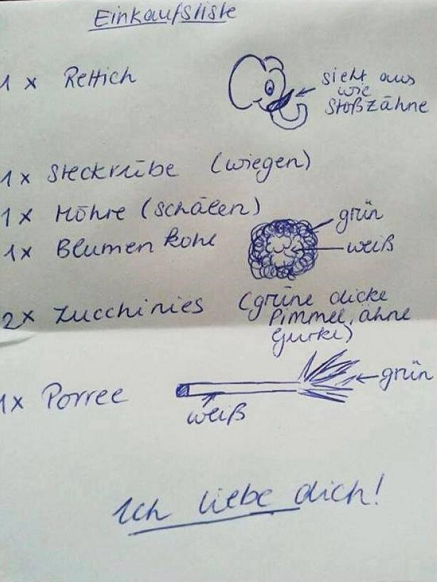 Einkaufsliste
1 x Rettich
sieht aus
wie
Stoßzähne
1 x Steckrübe (wiegen)
1 x Möhre (schälen)
1 x Blumenkohl
grün
weiß
2 x Zucchinies (grüne dicke
Pimmel, ähne
Gurke)
1 x Porree
weiß
grün
Ich liebe dich!